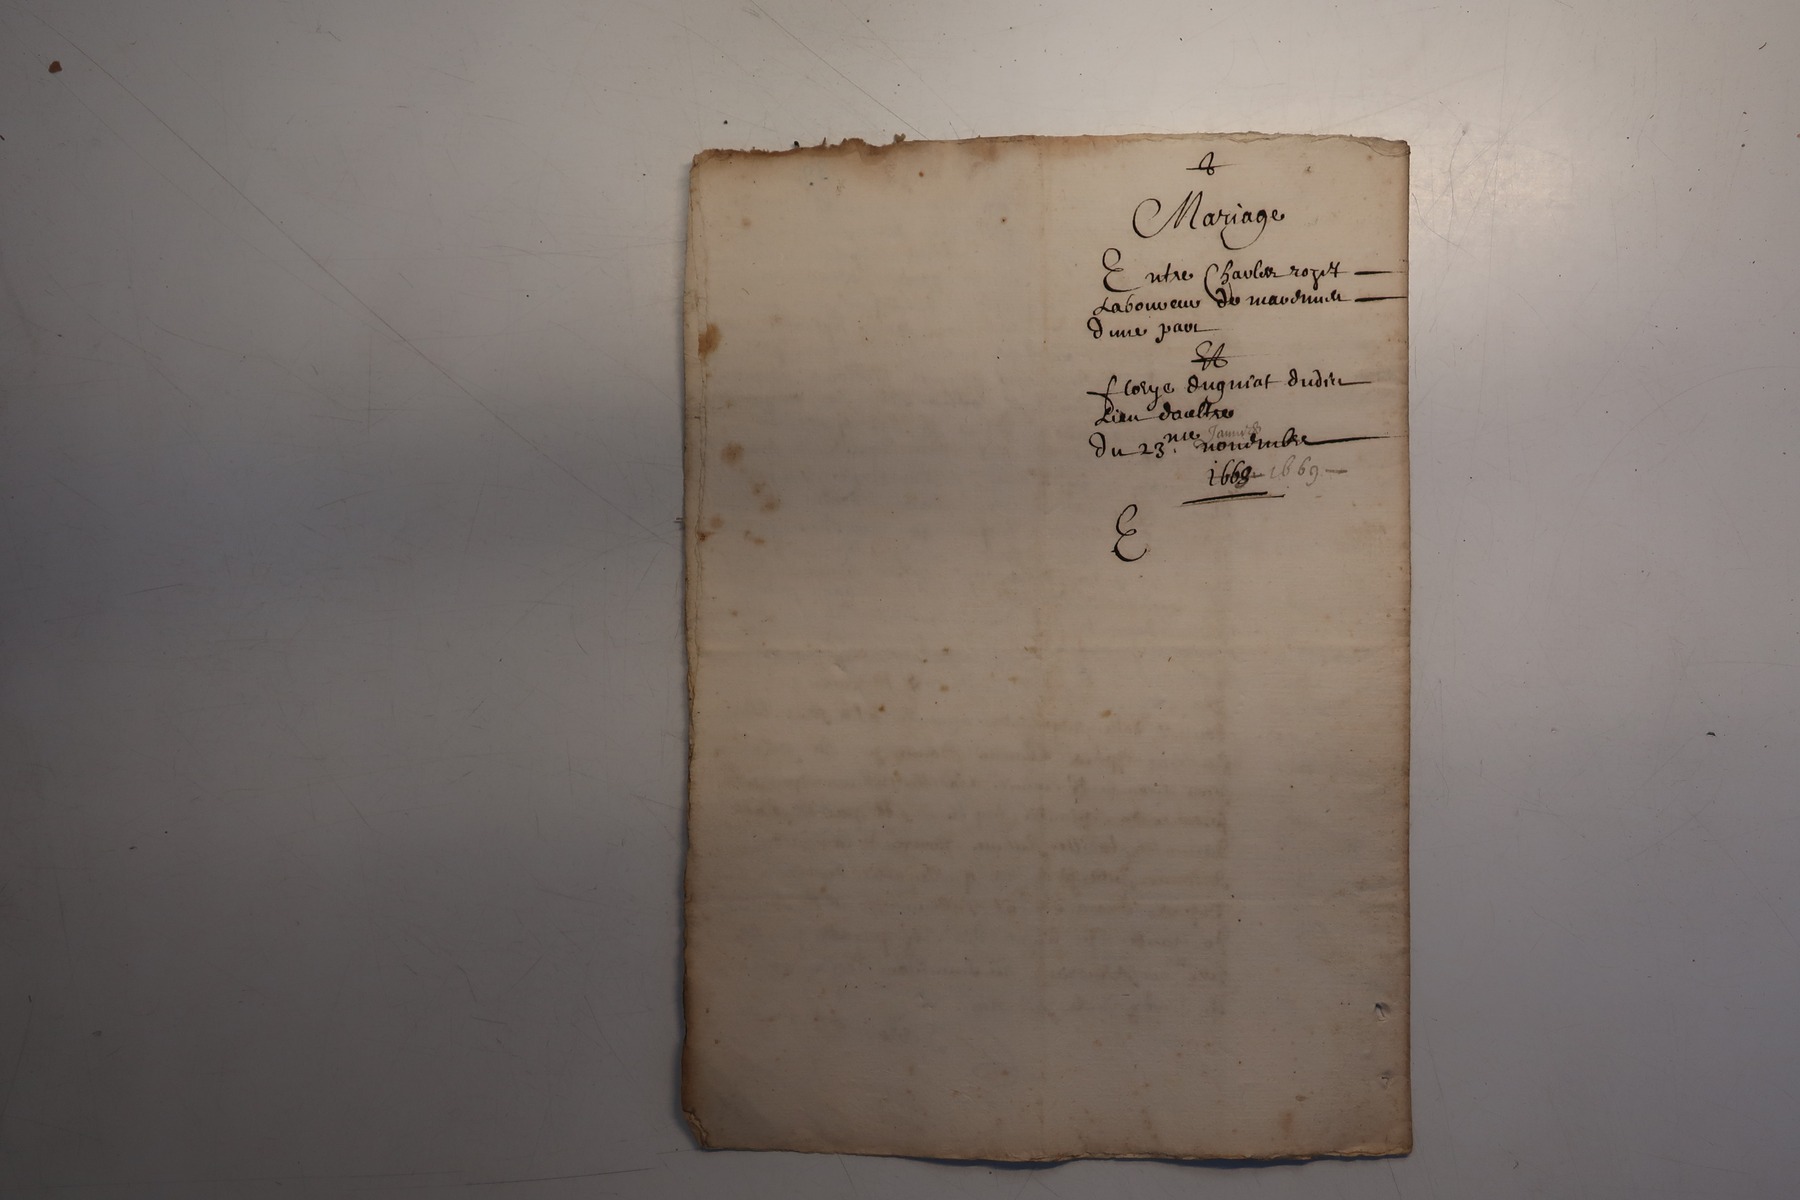 Mariage
Entre Charles rozet
Laboureur de
dune part
Et
florye dugniat dudit
Lieu daultre
du 23.me novembre
1669 1669
E